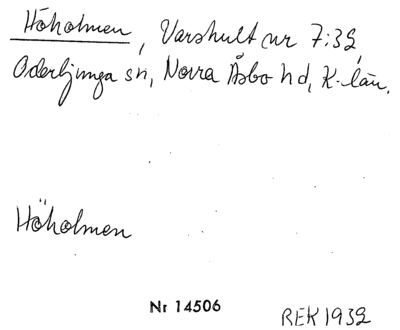 Höholmen, Varshult nr 7:32,
Oderljunga sn, Norra Åsbo hd, K-län.
Höholmen
Nr 14506
REK 1932